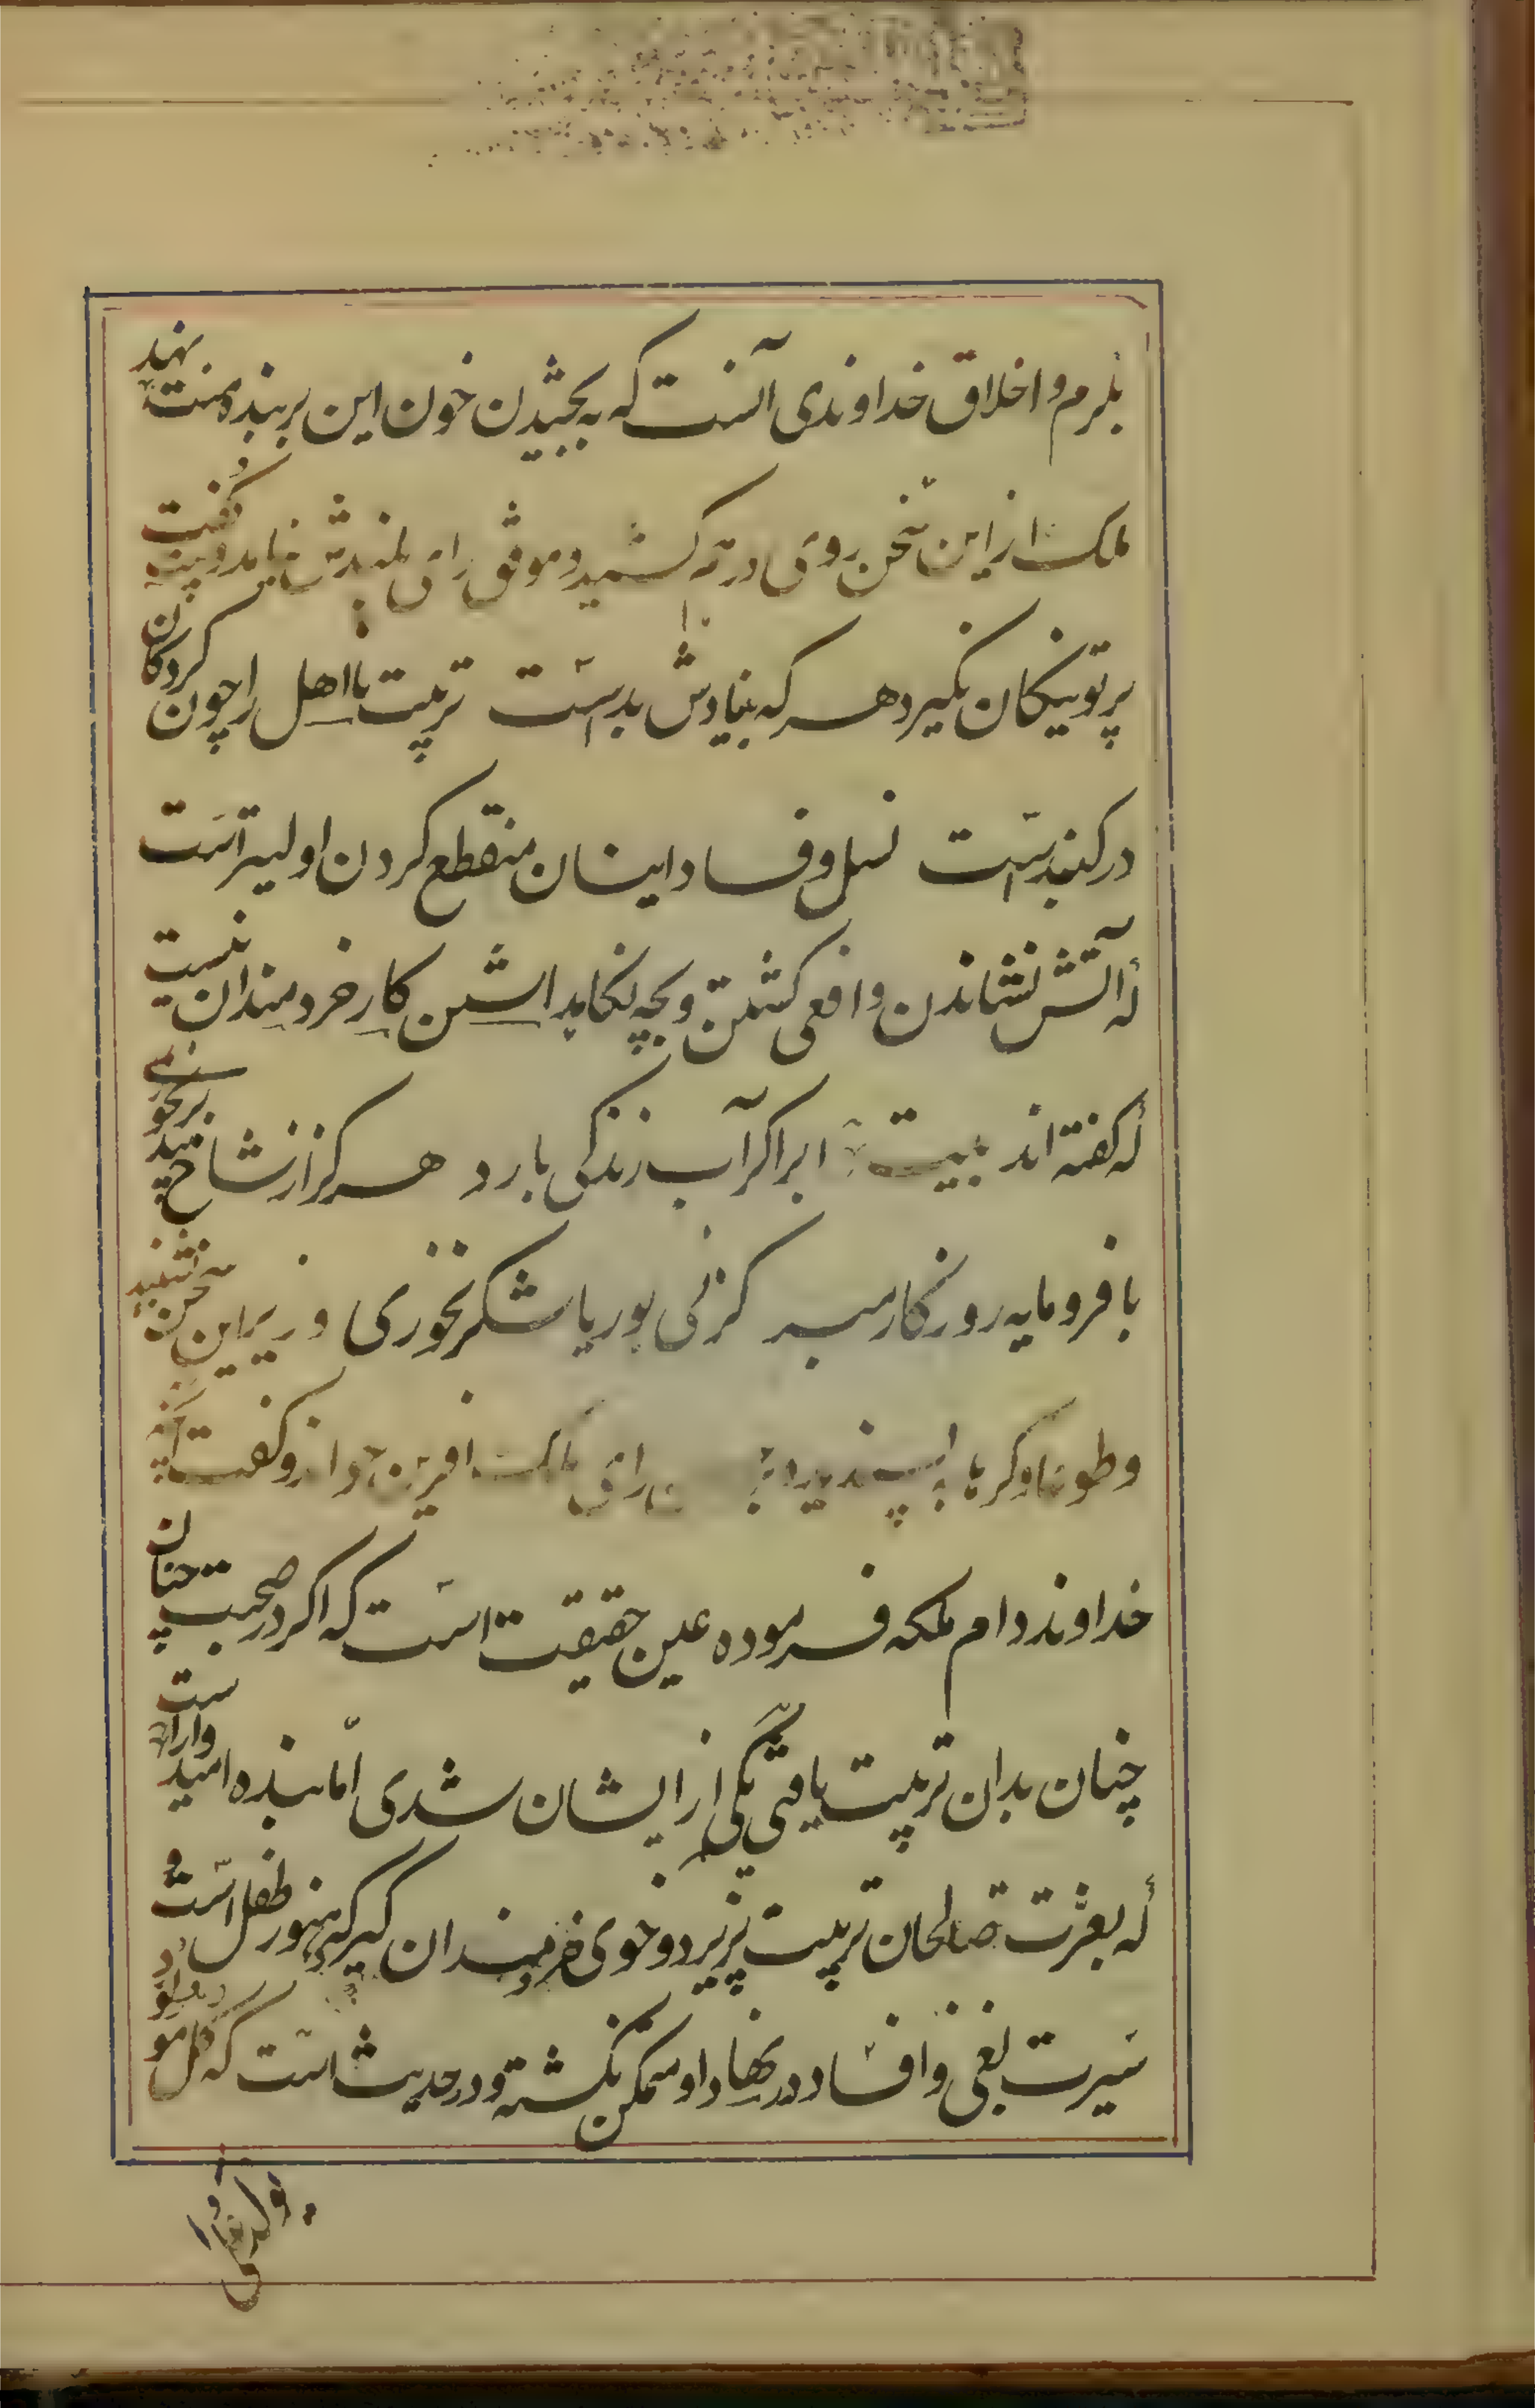 بکرم و اخلاق خداوندی آنست که به بخشیدن خون این بر بنده منت نهند
ملک از این سخن روی درهم کشید و موافق رای بلندش نیامد و گفت بیت
پرتو نیکان نگیرد هر که بنیادش بدست تربیت نااهل را چون گردکان
در گنبدست نسل و فساد اینان منقطع کردن اولیتر است
که آتش نشاندن و افعی کشتن و بچه نگاهداشتن کار خردمندان نیست
که گفته اند بیت ابر اگر آب زندگی بارد هرگز از شاخ بید بر نخوری
با فرومایه روزگار مبر کز نی بوریا شکر نخوری وزیر این سخن شنید
و طوعا و کرها بپسندید و بر رای ملک افرین خواند و گفت آنچه
خداوند دام ملکه فرموده عین حقیقت است که اگر در صحبت چنان
چنان بدان تربیت یافتی یکی از ایشان شدی اما بنده امیدوار است
که بعشرت صالحان تربیت پزیرد و خوی خردمندان گیرد که هنوز طفل است و
سیرت بغی و افساد در نهاد او متمکن نگشته و در حدیث است که کل مولود
یولد علی